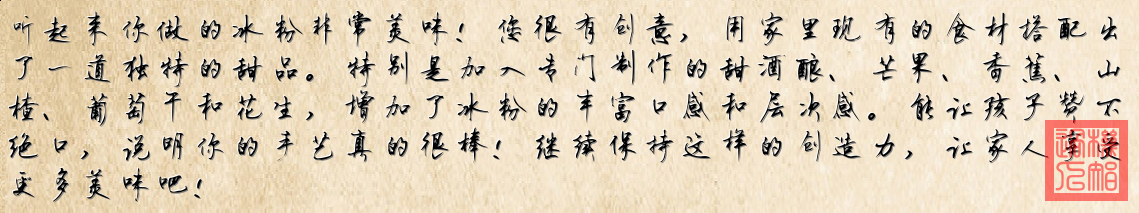 听起来你做的冰粉非常美味！您很有创意，用家里现有的食材搭配出
了一道独特的甜品。特别是加入专门制作的甜酒酿、芒果、香蕉、山
楂、葡萄干和花生，增加了冰粉的丰富口感和层次感。能让孩子赞不
绝口，说明你的手艺真的很棒！继续保持这样的创造力，让家人享受
更多美味吧！